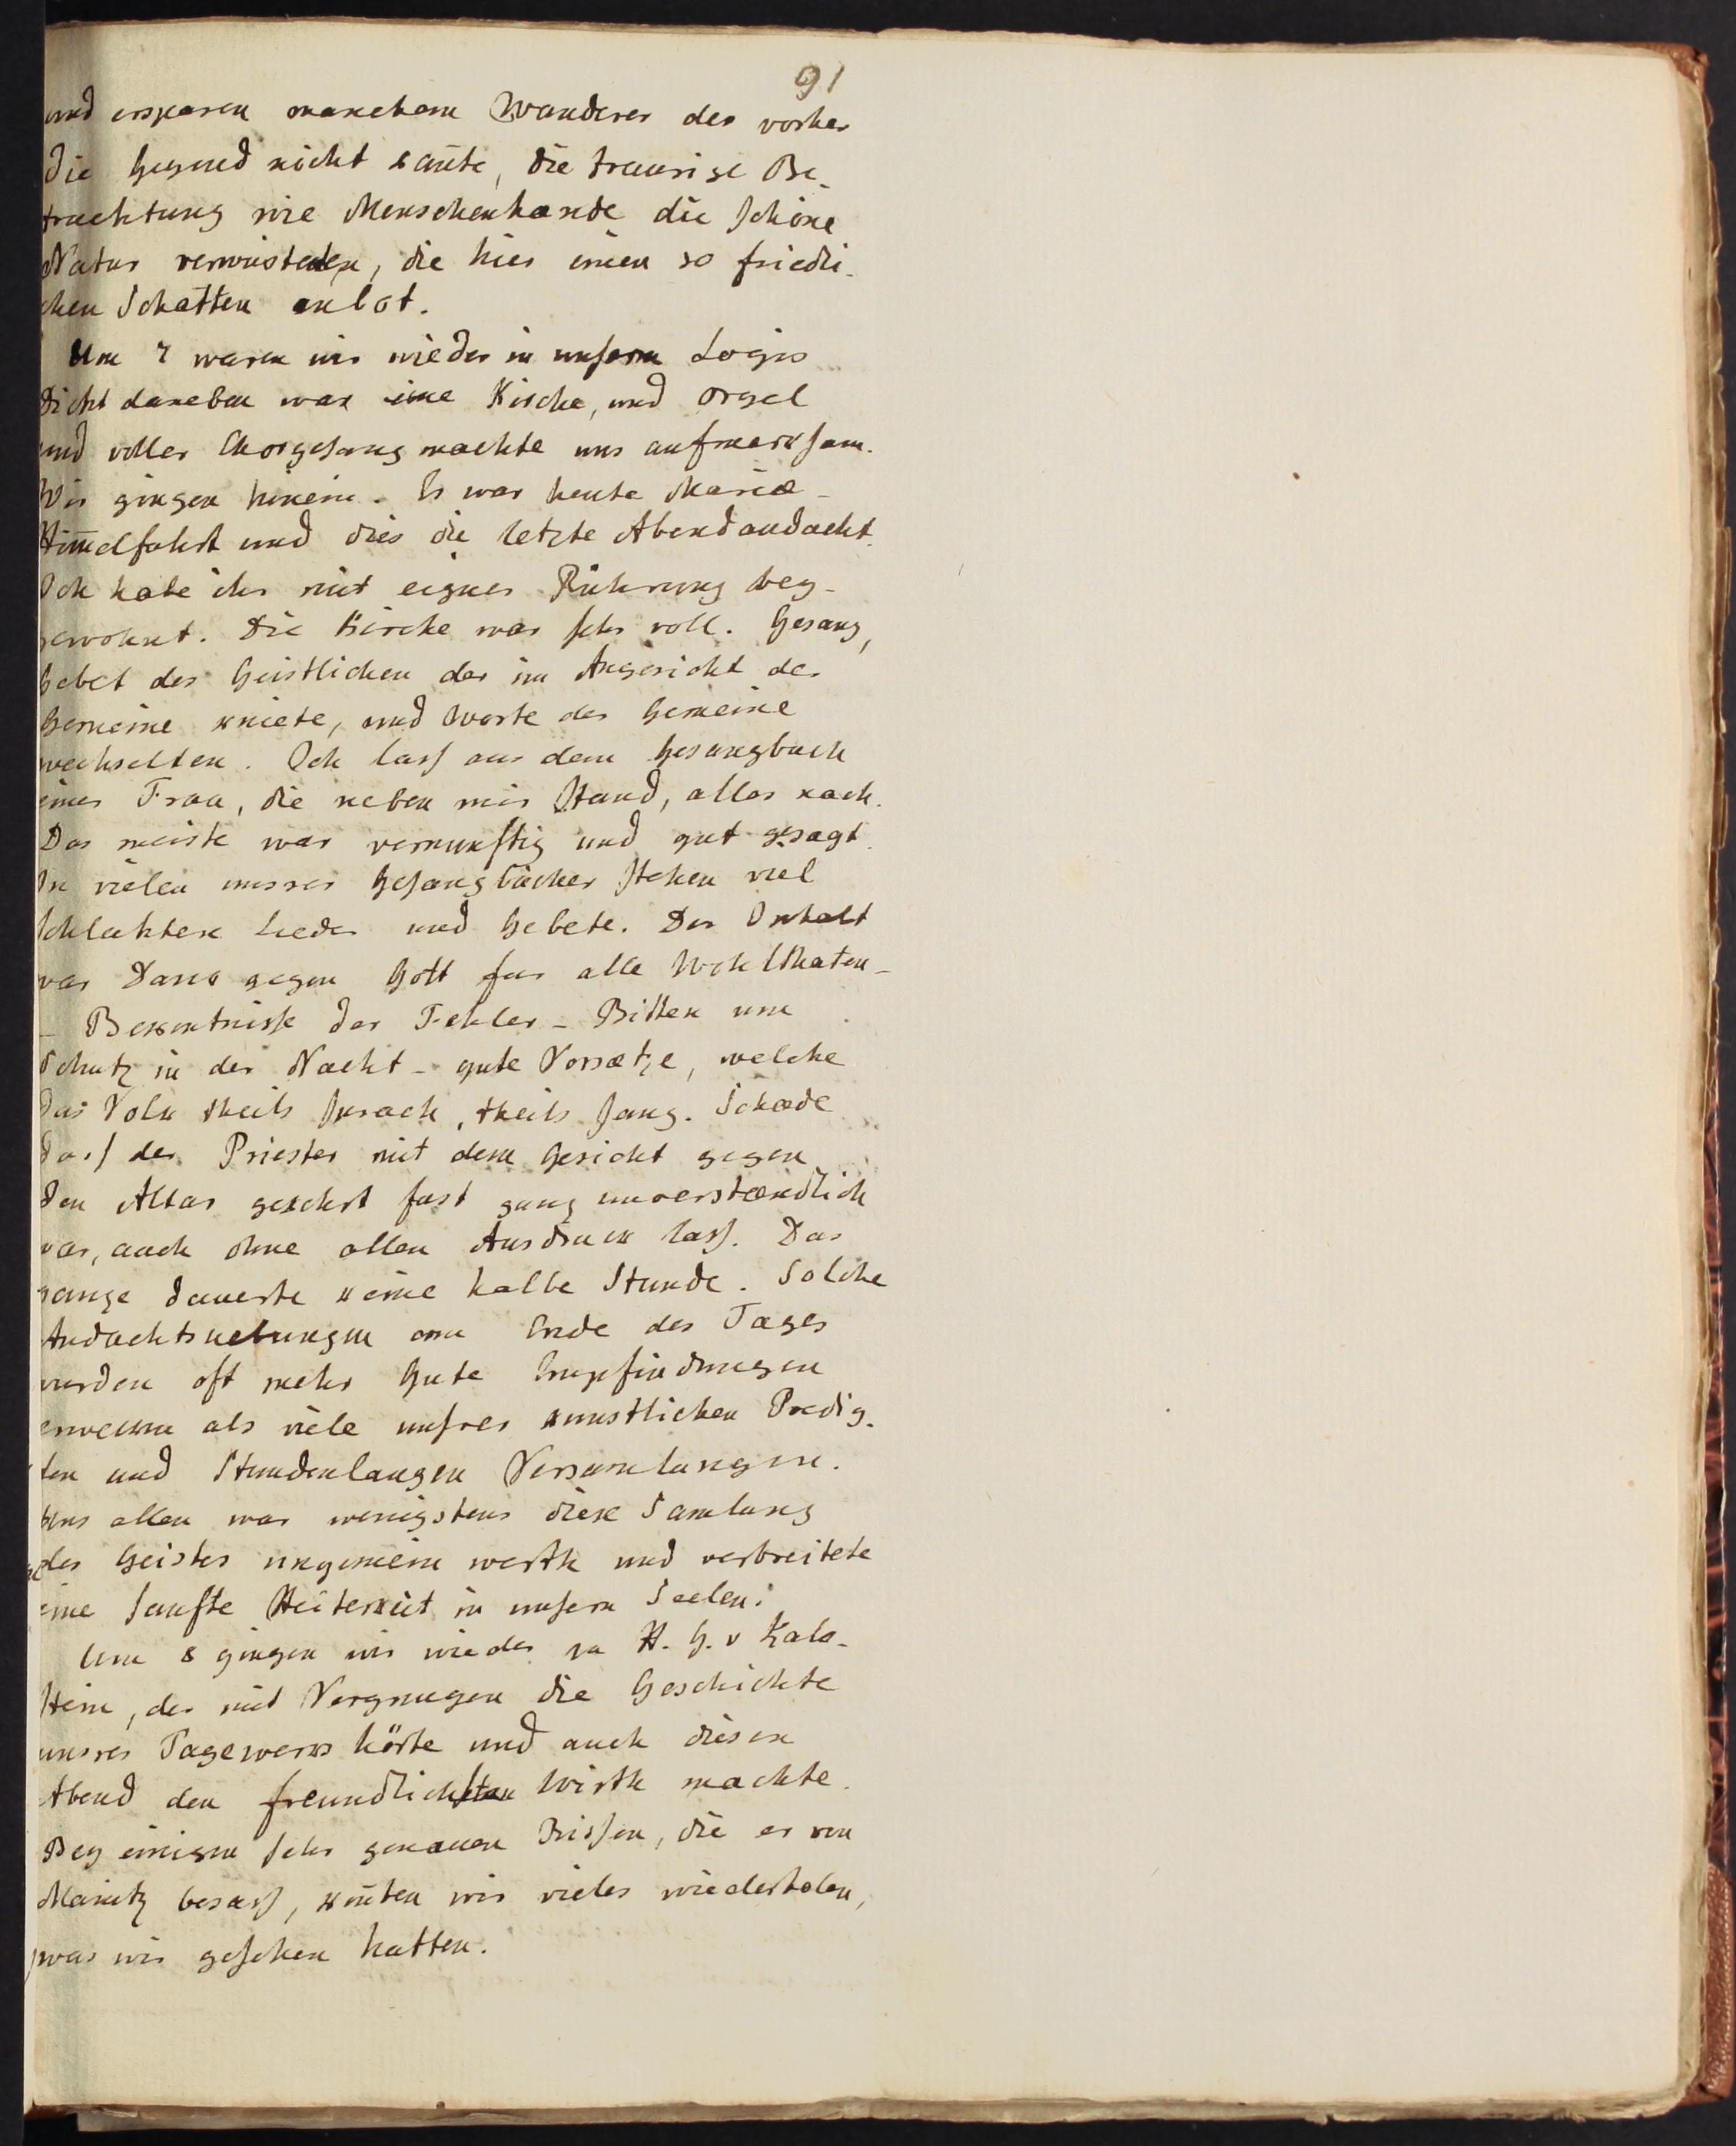 91
und ersparen manchem Wanderer der vorher
die Gegend nicht kañte, die traurige Be-
trachtung wie Menschenhænde die schöne
Natur verwüsteten, die hier einen so friedli-
chen Schatten anbot.
Um 7 waren wir wieder in unserm Logis
Dicht daneben war eine Kirche, und Orgel
und voller Chorgesang machte uns aufmerksam.
Wir gingen hinein. Es war heute Mariæ-
Him̄elfahrt und dies die letzte Abendandacht.
Ich habe ihr mit eigner Rührung bey-
gewohnt. Die Kirche war sehr voll. Gesang,
Gebet des Geistlichen der im Angesicht der
Gemeine kniete, und Worte der Gemeine
wechselten. Ich lass aus dem Gesangbuch
einer Frau, die neben mir stand, alles nach.
Das meiste war vernunftig und gut gesagt.
In vielen unsrer Gesangbücher stehen viel
schlechtere Lieder und Gebete. Der Inhalt
war Dank gegen Gott fur alle Wohlthaten-
- Bekentnisse der Fehler - Bitten um
Schutz in der Nacht - gute Vorsætze, welche
das Volk theils sprach, theils sang. Schade
dass der Priester mit dem Gesicht gegen
den Altar gekehrt fast ganz unverstændlich
war, auch ohne allen Ausdruck lass. Das
ganze dauerte keine halbe Stunde. Solche
Andachtsuebungen am Ende des Tages
wurden oft mehr gute Empfindungen
erwecken als viele unsrer kunstlichen Predig-
ten und Stundenlangen Versamlungen.
Uns allen war wenigstens diese Samlung
des Geistes ungemein werth und verbreitete
eine sanfte Heiterkeit in unsern Seelen.
Um 8 gingen wir wieder zu H. G. v Kalk-
stein, der mit Vergnugen die Geschichte
unsres Tagewerks hörte und auch diesen
Abend den freundlichsten Wirth machte.
Bey einigen sehr genauen Rissen, die er von
Maintz besass, konten wir vieles wiederholen,
was wir gesehen hatten.